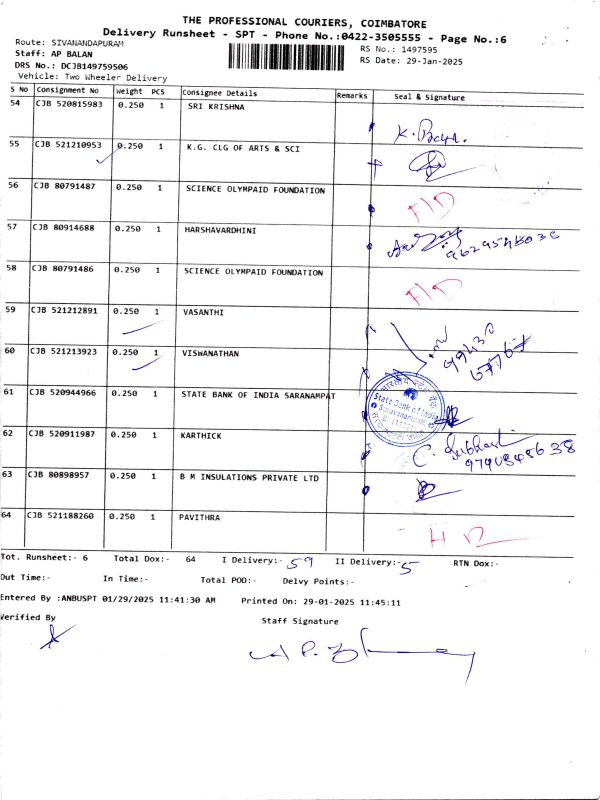 THE PROFESSIONAL COURIERS, COIMBATORE
Delivery Runsheet - SPT - Phone No.:0422-3505555 - Page No.:6
Route: SIVANANDAPURAM
Staff: AP BALAN
DRS No.: DCJB149759506
Vehicle: Two Wheeler Delivery
RS No.: 1497595
RS Date: 29-Jan-2025
S No Consignment No Weight PCS Consignee Details Remarks Seal & Signature
54 CJB 520815983 0.250 1 SRI KRISHNA
55 CJB 521210953 0.250 1 K.G. CLG OF ARTS & SCI
56 CJB 80791487 0.250 1 SCIENCE OLYMPAID FOUNDATION
57 CJB 80914688 0.250 1 HARSHAVARDHINI
58 CJB 80791486 0.250 1 SCIENCE OLYMPAID FOUNDATION
59 CJB 521212891 0.250 1 VASANTHI
60 CJB 521213923 0.250 1 VISWANATHAN
61 CJB 520944966 0.250 1 STATE BANK OF INDIA SARANAMPAT
State Bank of India
62 CJB 520911987 0.250 1 KARTHICK
63 CJB 80898957 0.250 1 B M INSULATIONS PRIVATE LTD
64 CJB 521188260 0.250 1 PAVITHRA
Tot. Runsheet:- 6 Total Dox:- 64 I Delivery:- 59 II Delivery:- 5 RTN Dox:-
Out Time:- In Time:- Total POD:- Delvy Points:-
Entered By :ANBUSPT 01/29/2025 11:41:30 AM Printed On: 29-01-2025 11:45:11
Verified By Staff Signature